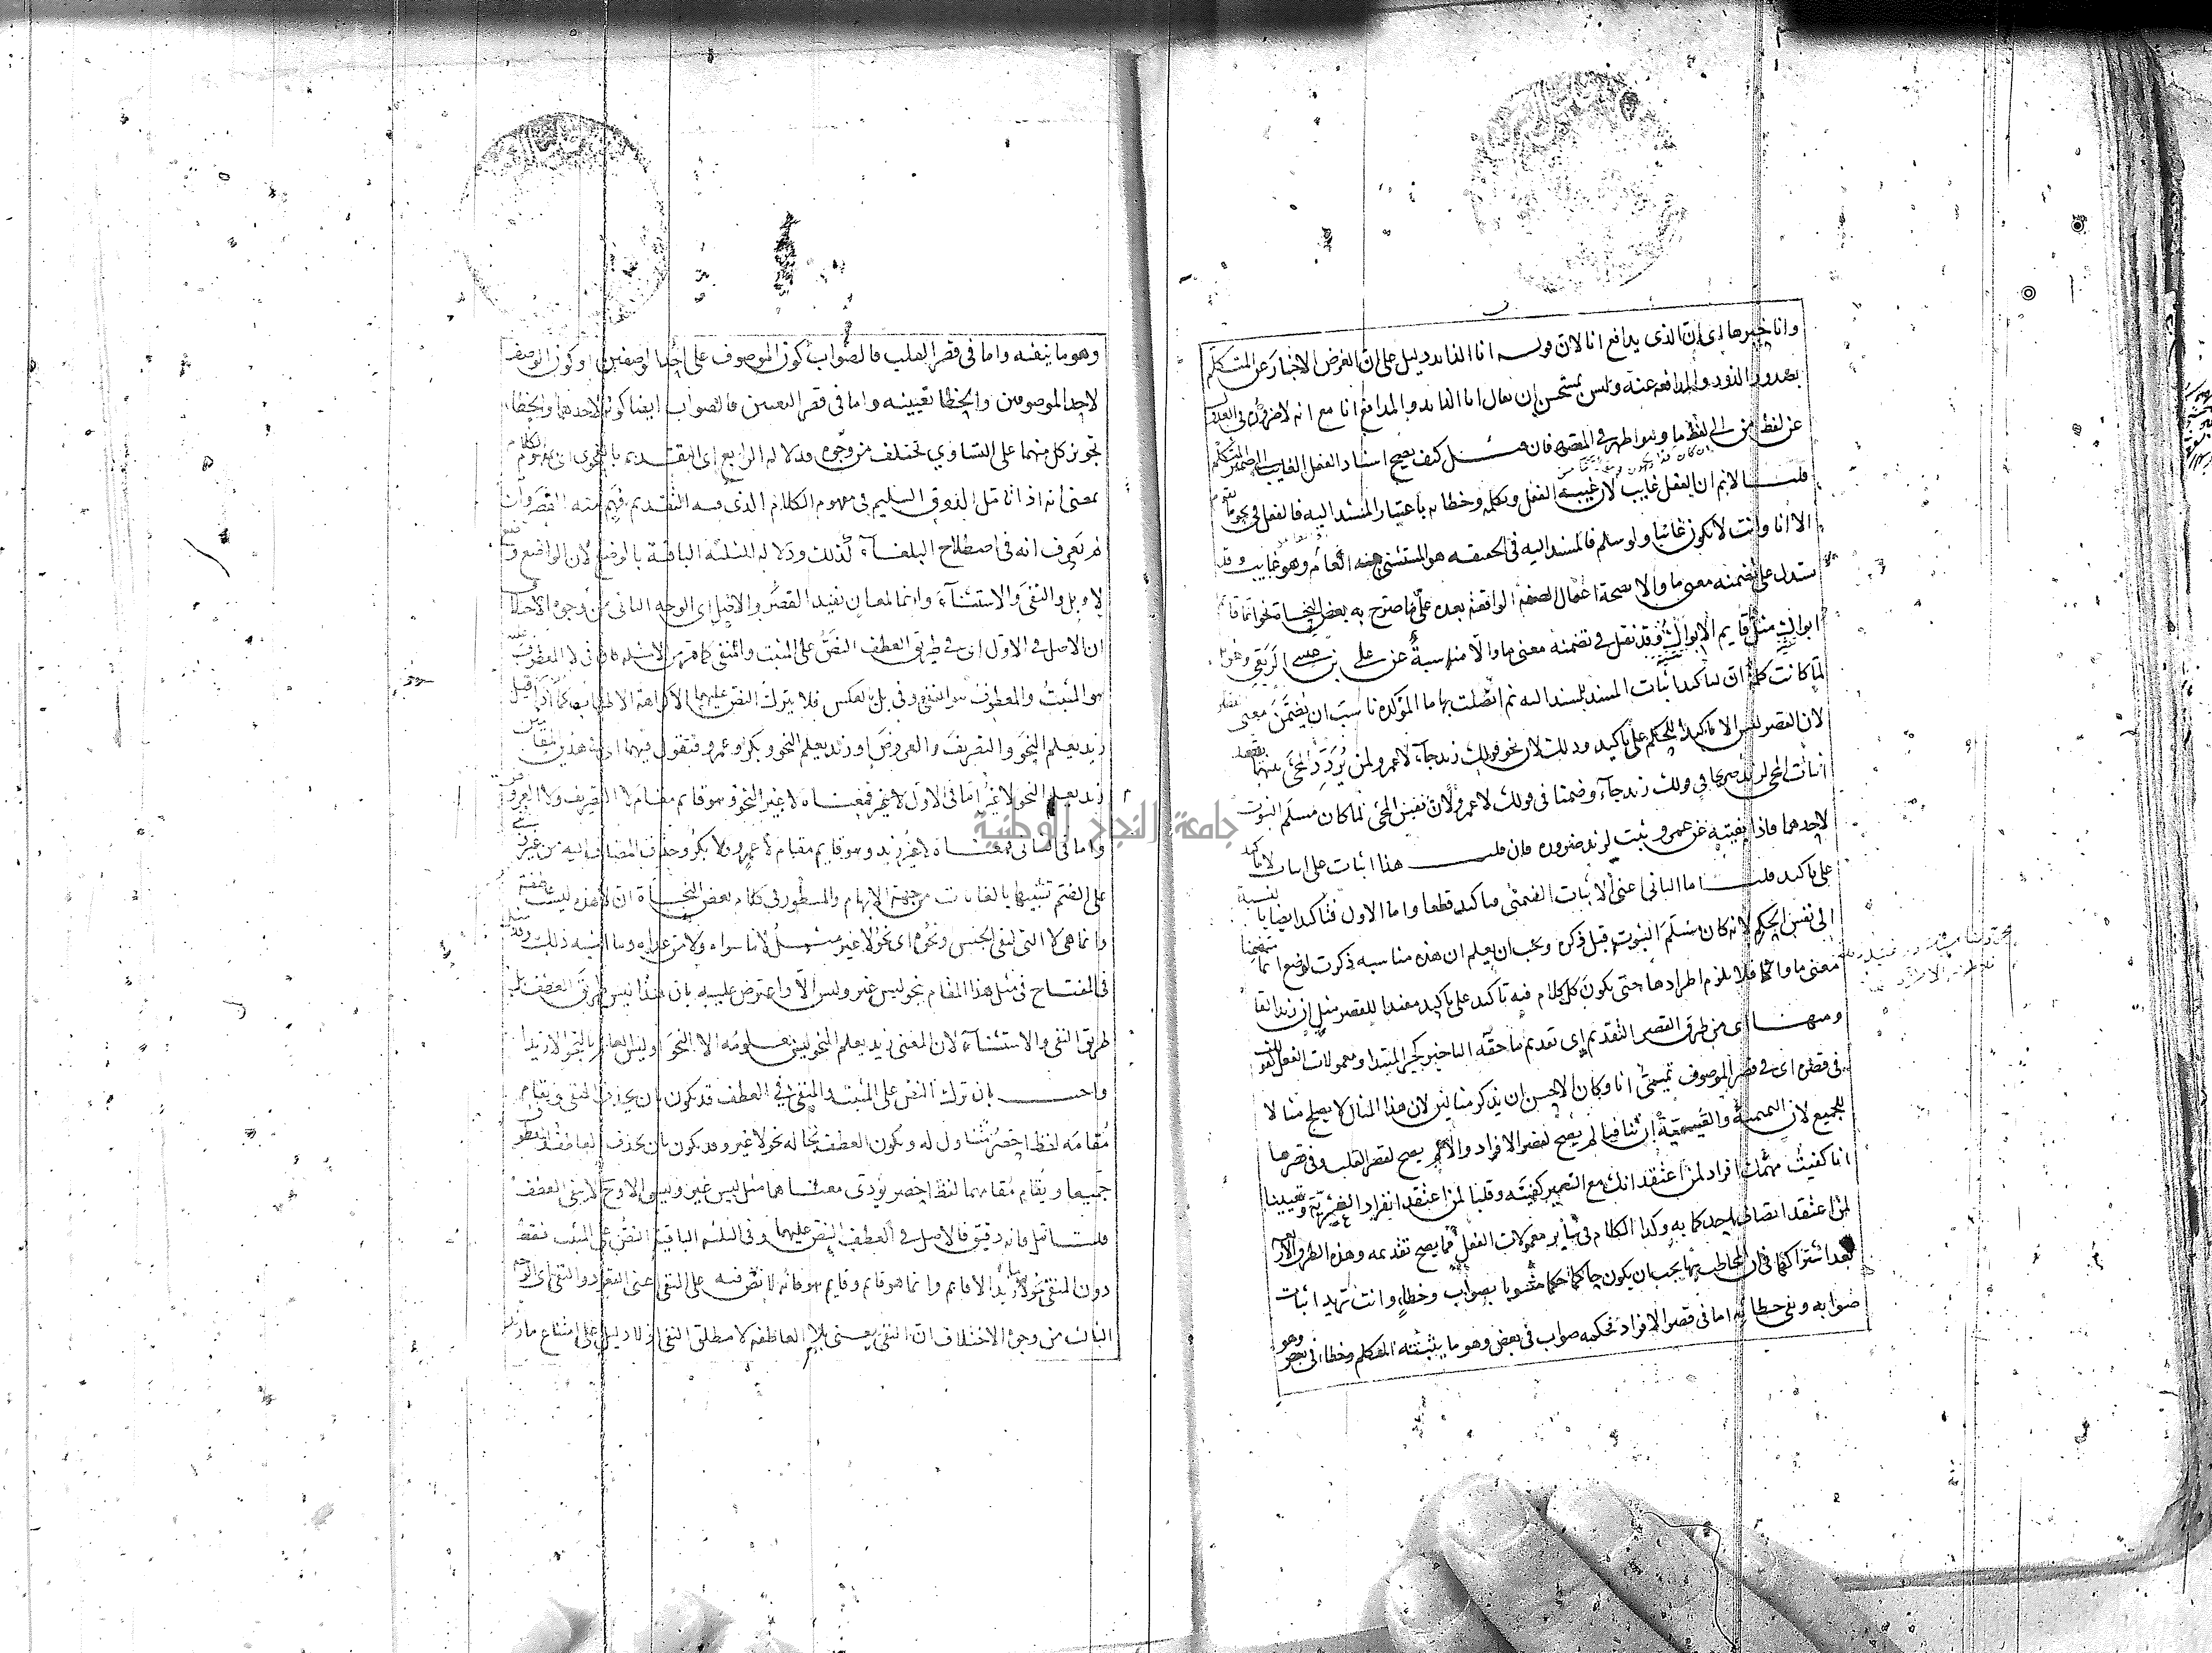 وانا خبرها اى ان الذى يدافع انا لان قوله انا الذايد دليل على ان الغرض الاخبار عن المتكلم
بصدور الذود والمدافعه عنه وليس بمستحسن ان يقال انا الذايد والمدافع انا مع انه لا ضرورة فى العدول
عن لفظ من الى لفظ ما وهو اظهر فى المقصود فان قلت كيف يصح اسناد الفعل الغايب الى ضمير المتكلم
قلت لانم ان الفعل غايب لان غيبة الفعل وتكلمه وخطابه باعتبار المسند اليه فالفعل فى نحو ما يقوم
الا انا وانت لا يكون غائبا ولو سلم فالمسند اليه فى الحقيقه هو المستثنى منه العام وهو غايب وقد
يستدل على تضمنه معنى ما والا بصحة اعمال الصفة الواقعة بعده على ما صرح به بعض النحاة نحو انما قائم
ابواك مثل ما قايم الا ابواك وقد نقل فى تضمنه معنى ما والا مناسبة عن على بن عيسى الربعى وهو انه
لما كانت كلمة ان لتاكيد اثبات المسند للمسند اليه ثم اتصلت بها ما المؤكدة ناسب ان يضمن معنى القصر
لان القصر ليس الا تاكيدا للحكم على تاكيد وذلك لان نحو قولك زيد جاء لا عمرو لمن يردد المجئ بينهما
اثبات المجئ لزيد صريحا فى قولك زيد جاء وضمنا فى قولك لا عمرو لان نفس المجئ لما كان مسلم الثبوت
لاحدهما فاذا نفيته عن عمرو ثبت لزيد ضرورة فان قلت هذا اثبات على اثبات لا تاكيد
على تاكيد قلت اما الثانى اعنى الاثبات الضمنى فتاكيد قطعا واما الاول فتاكيد ايضا بالنسبة
الى نفس الحكم لانه كان مسلم الثبوت قبل ذكره ويجب ان يعلم ان هذه مناسبه ذكرت لوضع انما متضمنا
معنى ما والا فلا يلزم اطرادها حتى يكون كل كلام فيه تاكيد على تاكيد مفيدا للقصر مثل ان زيدا لقائم
ومنها اى من طرق القصر التقديم اى تقديم ما حقه التاخير كخبر المبتدا ومعمولات الفعل كقولك
فى قصره اى فى قصر الموصوف تميمى انا وكان الاحسن ان يذكر مثالين لان هذا المثال لا يصلح مثالا
للجميع لان التميمية والقيسية ان تنافيا لم يصح لقصر الافراد والا لم يصح لقصر القلب وفى قصرها
انا كفيت مهمك افرادا لمن اعتقد انك مع الغير كفيته وقلبا لمن اعتقد انفراد الغير به وتعيينا
لمن اعتقد اتصاف احدكما به وكذا الكلام فى ساير معمولات الفعل مما يصح تقديمه وهذه الطرق الاربعة
بعد اشتراكها فى ان المخاطب بها يجب ان يكون حاكما حكما مشوبا بصواب وخطاء وانت تريد اثبات
صوابه ونفى خطائه اما فى قصر الافراد فحكمه صواب فى بعض وهو ما يثبته المتكلم وخطا فى بعض وهو
وهو ما ينفيه واما فى قصر القلب فالصواب كون الموصوف على احد الوصفين او كون الوصف
لاحد الموصوفين والخطا تعيينه واما فى قصر التعيين فالصواب ايضا كونه لاحدهما والخطاء
تجويز كل منهما على التساوي تختلف من وجوه فدلالة الرابع اى التقديم بالفحوى اى بمفهوم الكلام
بمعنى انه اذا تامل الذوق السليم فى مفهوم الكلام الذى فيه التقديم فهم منه القصر وان
لم يعرف انه فى اصطلاح البلغاء كذلك ودلالة الثلثه الباقية بالوضع لان الواضع وضع
لا وبل والنفى والاستثناء وانما لمعان يفيد القصر والاصل اى الوجه الثانى من وجوه الاختلاف
ان الاصل فى الاول اى فى طريق العطف النص على المثبت والمنفى كما مر من الامثله فان فى لا المعطوف عليه
هو المثبت والمعطوف هو المنفى وفى بل بالعكس فلا يترك النص عليهما الا كراهة الاطناب كما اذا قيل
زيد يعلم النحو والتصريف والعروض او زيد يعلم النحو وبكر وعمرو فتقول فيهما اى فى هذين المقامين
زيد يعلم النحو لا غير اما فى الاول لا غير فمعناه لا غير النحو وهو قائم مقام لا التصريف ولا العروض
واما فى الثانى فمعناه لا غير زيد وهو قايم مقام لا عمرو ولا بكر وحذف المضاف اليه من غير وبنى
على الضم تشبيها بالغايات من جهة الابهام والمسطور فى كلام بعض النحاة ان لا هذه ليست عاطفة
وانما هى لا التى لنفى الجنس ونحوه اى نحو لا غير مثل لا ما سواه ولا من عداه وما اشبه ذلك وقد مثل
فى المفتاح فى مثل هذا المقام بنحو ليس غير وليس الا واعترض عليه بان هذا ليس طريق العطف بل
طريق النفى والاستثناء لان المعنى زيد يعلم النحو ليس معلومه الا النحو وليس العالم بالنحو الا زيدا
واجيب بان ترك النص على المثبت والمنفى فى العطف قد يكون بان يحذف المنفى ويقام
مقامه لفظ اخصر متناول له ويكون العطف بحاله نحو لا غير وقد يكون بان يحذف العاطف والمعطوف
جميعا ويقام مقامهما لفظ اخصر يؤدى معناهما مثل ليس غير وليس الا وح لا يبقى العطف
فليتامل فانه دقيق فالاصل فى العطف النص عليهما وفى الثلثه الباقية النص على المثبت فقط
دون المنفى نحو ما زيد الا قائم وانما هو قائم وقايم هو فانه لا نص فيه على النفى اعنى القعود والنفى اى الوجه
الثالث من وجوه الاختلاف ان النفى يعنى بلا العاطفه لا مطلق النفى اذ لا دليل على امتناع ما زيد
جامعة النجاح الوطنية